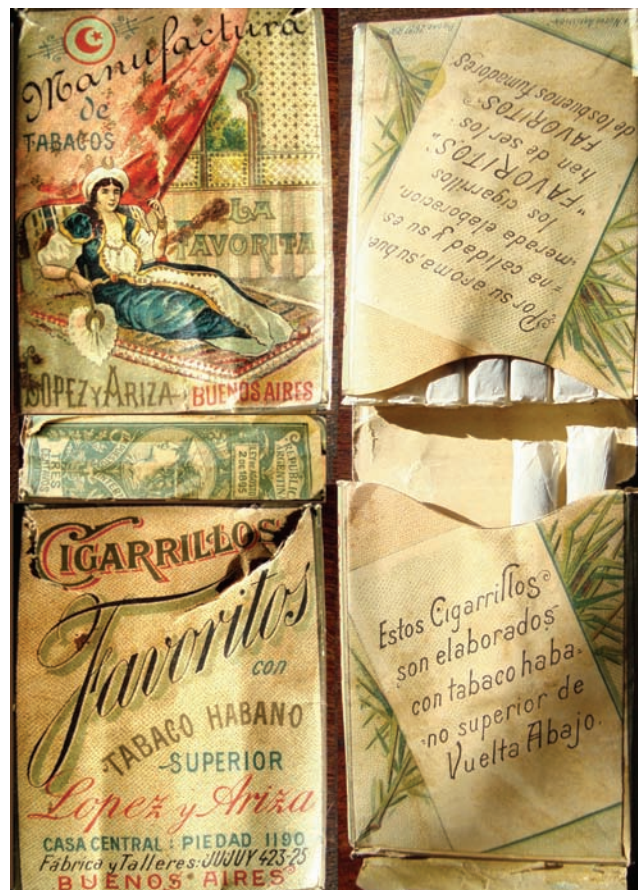 Manufactura
de
TABACOS
LA
FAVORITA
LOPEZ Y ARIZA BUENOS AIRES
REPUBLICA
ARGENTINA
LEY DE AGOSTO
2 DE 1895
TRES
CENTAVOS
CIGARRILLOS
Favoritos
con
TABACO HABANO
SUPERIOR
Lopez y Ariza
CASA CENTRAL: PIEDAD 1190
Fábrica y Talleres: JUJUY 423-25
BUENOS AIRES
Por su aroma, su bue-
=na calidad y su es-
=merada elaboracion,
los cigarrillos
"FAVORITOS"
han de ser los
FAVORITOS
de los buenos fumadores
Estos Cigarrillos
son elaborados
con tabaco haba-
-no superior de
Vuelta Abajo.